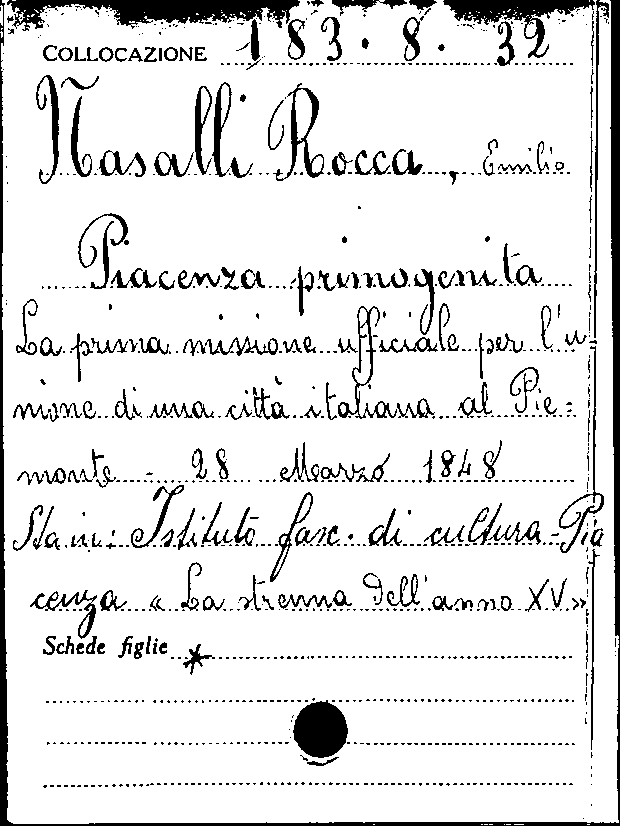 COLLOCAZIONE 183. 8. 32
Nasalli Rocca, Emilio
Piacenza primogenita
La prima missione ufficiale per l'u=
nione di una città italiana al Pie=
monte - 28 Marzo 1848
Sta in: Istituto fasc. di cultura - Pia
cenza « La strenna dell'anno XV»
Schede figlie *